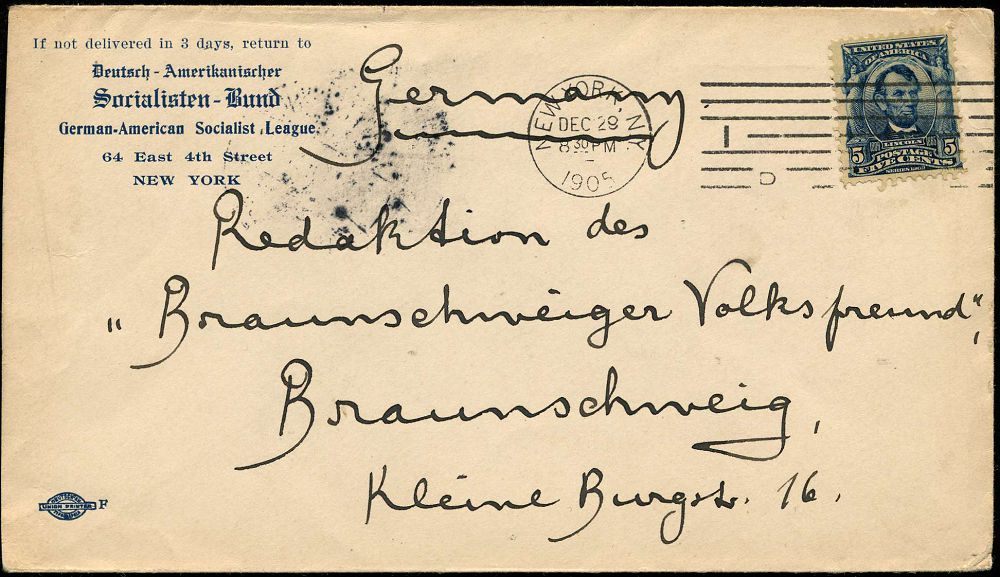 If not delivered in 3 days, return to
Deutsch-Amerikanischer
Socialisten-Bund
German-American Socialist League,
64 East 4th Street
NEW YORK
Germany
NEW YORK NY
DEC 29
8 30 PM
1905
1
D
UNITED STATES
OF AMERICA
LINCOLN
5 POSTAGE 5
FIVE CENTS
SERIES 1902
Redaktion des
„Braunschweiger Volksfreund“,
Braunschweig,
Kleine Burgstr. 16.
UNION PRINTER F